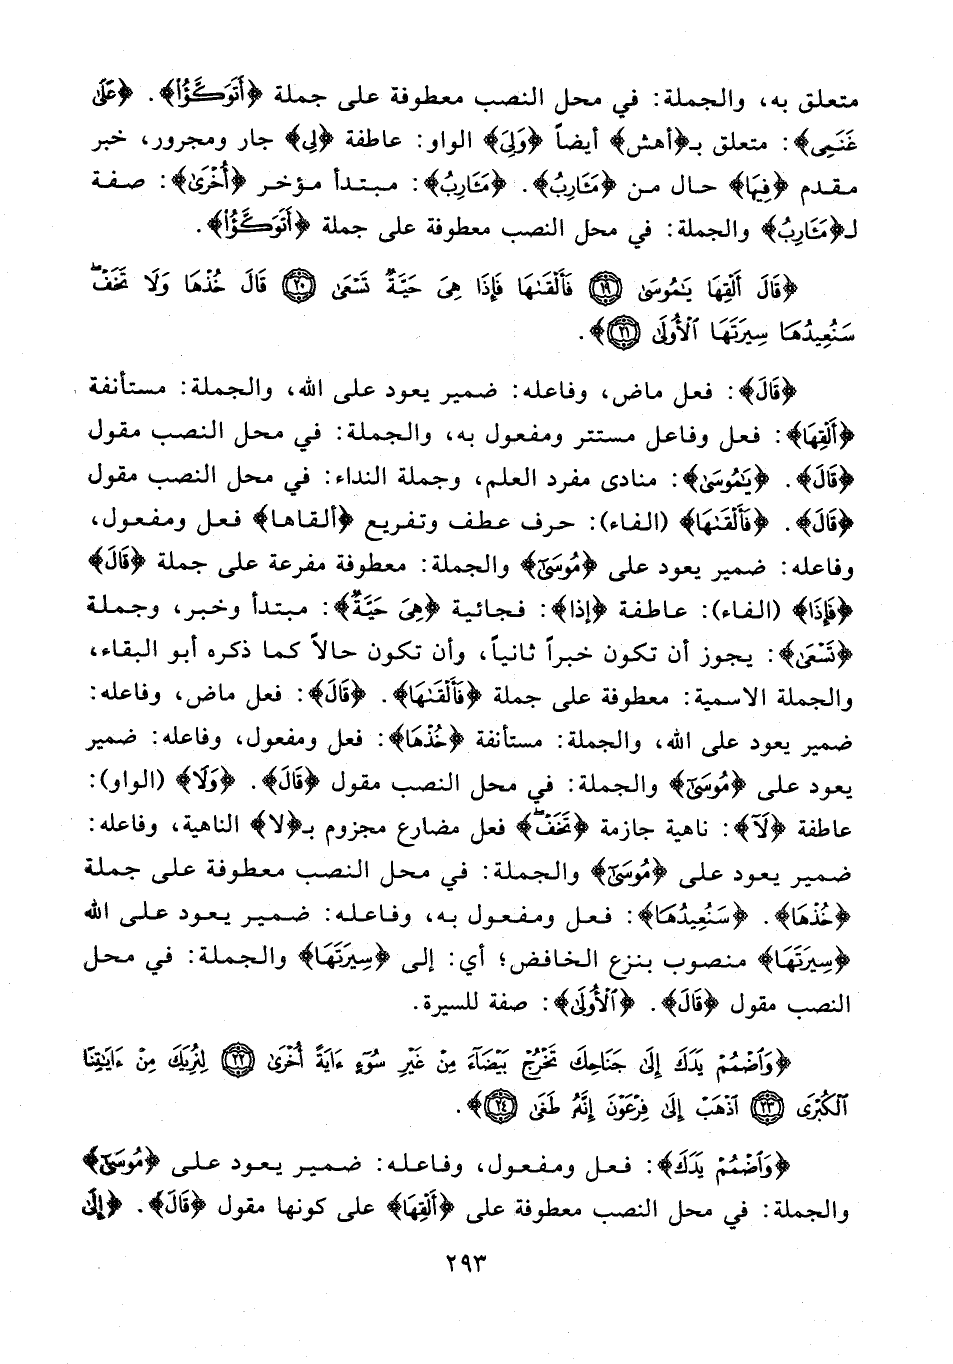 متعلق به، والجملة: في محل النصب معطوفة على جملة ﴿أَتَوَكَّؤُا﴾. ﴿عَلَىٰ
غَنَمِى﴾: متعلق بـ﴿أهش﴾ أيضاً ﴿وَلِىَ﴾ الواو: عاطفة ﴿لِى﴾ جار ومجرور، خبر
مقدم ﴿فِيهَا﴾ حال من ﴿مَـَٔارِبُ﴾. ﴿مَـَٔارِبُ﴾: مبتدأ مؤخر ﴿أُخْرَىٰ﴾: صفة
لـ﴿مَـَٔارِبُ﴾ والجملة: في محل النصب معطوفة على جملة ﴿أَتَوَكَّؤُا﴾.
﴿قَالَ أَلْقِهَا يَٰمُوسَىٰ ١٩ فَأَلْقَىٰهَا فَإِذَا هِىَ حَيَّةٌ تَسْعَىٰ ٢٠ قَالَ خُذْهَا وَلَا تَخَفْ ۖ
سَنُعِيدُهَا سِيرَتَهَا ٱلْأُولَىٰ ٢١﴾.
﴿قَالَ﴾: فعل ماض، وفاعله: ضمير يعود على الله، والجملة: مستأنفة
﴿أَلْقِهَا﴾: فعل وفاعل مستتر ومفعول به، والجملة: في محل النصب مقول
﴿قَالَ﴾. ﴿يَٰمُوسَىٰ﴾: منادى مفرد العلم، وجملة النداء: في محل النصب مقول
﴿قَالَ﴾. ﴿فَأَلْقَىٰهَا﴾ (الفاء): حرف عطف وتفريع ﴿ألقاها﴾ فعل ومفعول،
وفاعله: ضمير يعود على ﴿مُوسَىٰٓ﴾ والجملة: معطوفة مفرعة على جملة ﴿قَالَ﴾
﴿فَإِذَا﴾ (الفاء): عاطفة ﴿إذا﴾: فجائية ﴿هِىَ حَيَّةٌ﴾: مبتدأ وخبر، وجملة
﴿تَسْعَىٰ﴾: يجوز أن تكون خبراً ثانياً، وأن تكون حالاً كما ذكره أبو البقاء،
والجملة الاسمية: معطوفة على جملة ﴿فَأَلْقَىٰهَا﴾. ﴿قَالَ﴾: فعل ماض، وفاعله:
ضمير يعود على الله، والجملة: مستأنفة ﴿خُذْهَا﴾: فعل ومفعول، وفاعله: ضمير
يعود على ﴿مُوسَىٰٓ﴾ والجملة: في محل النصب مقول ﴿قَالَ﴾. ﴿وَلَا﴾ (الواو):
عاطفة ﴿لَآ﴾: ناهية جازمة ﴿تَخَفْ ۖ﴾ فعل مضارع مجزوم بـ﴿لا﴾ الناهية، وفاعله:
ضمير يعود على ﴿مُوسَىٰٓ﴾ والجملة: في محل النصب معطوفة على جملة
﴿خُذْهَا﴾. ﴿سَنُعِيدُهَا﴾: فعل ومفعول به، وفاعله: ضمير يعود على الله
﴿سِيرَتَهَا﴾ منصوب بنزع الخافض؛ أي: إلى ﴿سِيرَتَهَا﴾ والجملة: في محل
النصب مقول ﴿قَالَ﴾. ﴿ٱلْأُولَىٰ﴾: صفة للسيرة.
﴿وَٱضْمُمْ يَدَكَ إِلَىٰ جَنَاحِكَ تَخْرُجْ بَيْضَآءَ مِنْ غَيْرِ سُوٓءٍ ءَايَةً أُخْرَىٰ ٢٢ لِنُرِيَكَ مِنْ ءَايَٰتِنَا
ٱلْكُبْرَى ٢٣ ٱذْهَبْ إِلَىٰ فِرْعَوْنَ إِنَّهُۥ طَغَىٰ ٢٤﴾.
﴿وَٱضْمُمْ يَدَكَ﴾: فعل ومفعول، وفاعله: ضمير يعود على ﴿مُوسَىٰٓ﴾
والجملة: في محل النصب معطوفة على ﴿أَلْقِهَا﴾ على كونها مقول ﴿قَالَ﴾. ﴿إِلَىٰ
٢٩٣